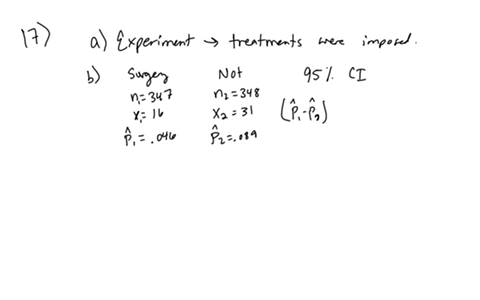 17) a) Experiment → treatments were imposed.
b) Surgery Not 95% CI
n₁=347 n₂=348
x₁=16 x₂=31 (p̂₁-p̂₂)
p̂₁=.046 p̂₂=.089